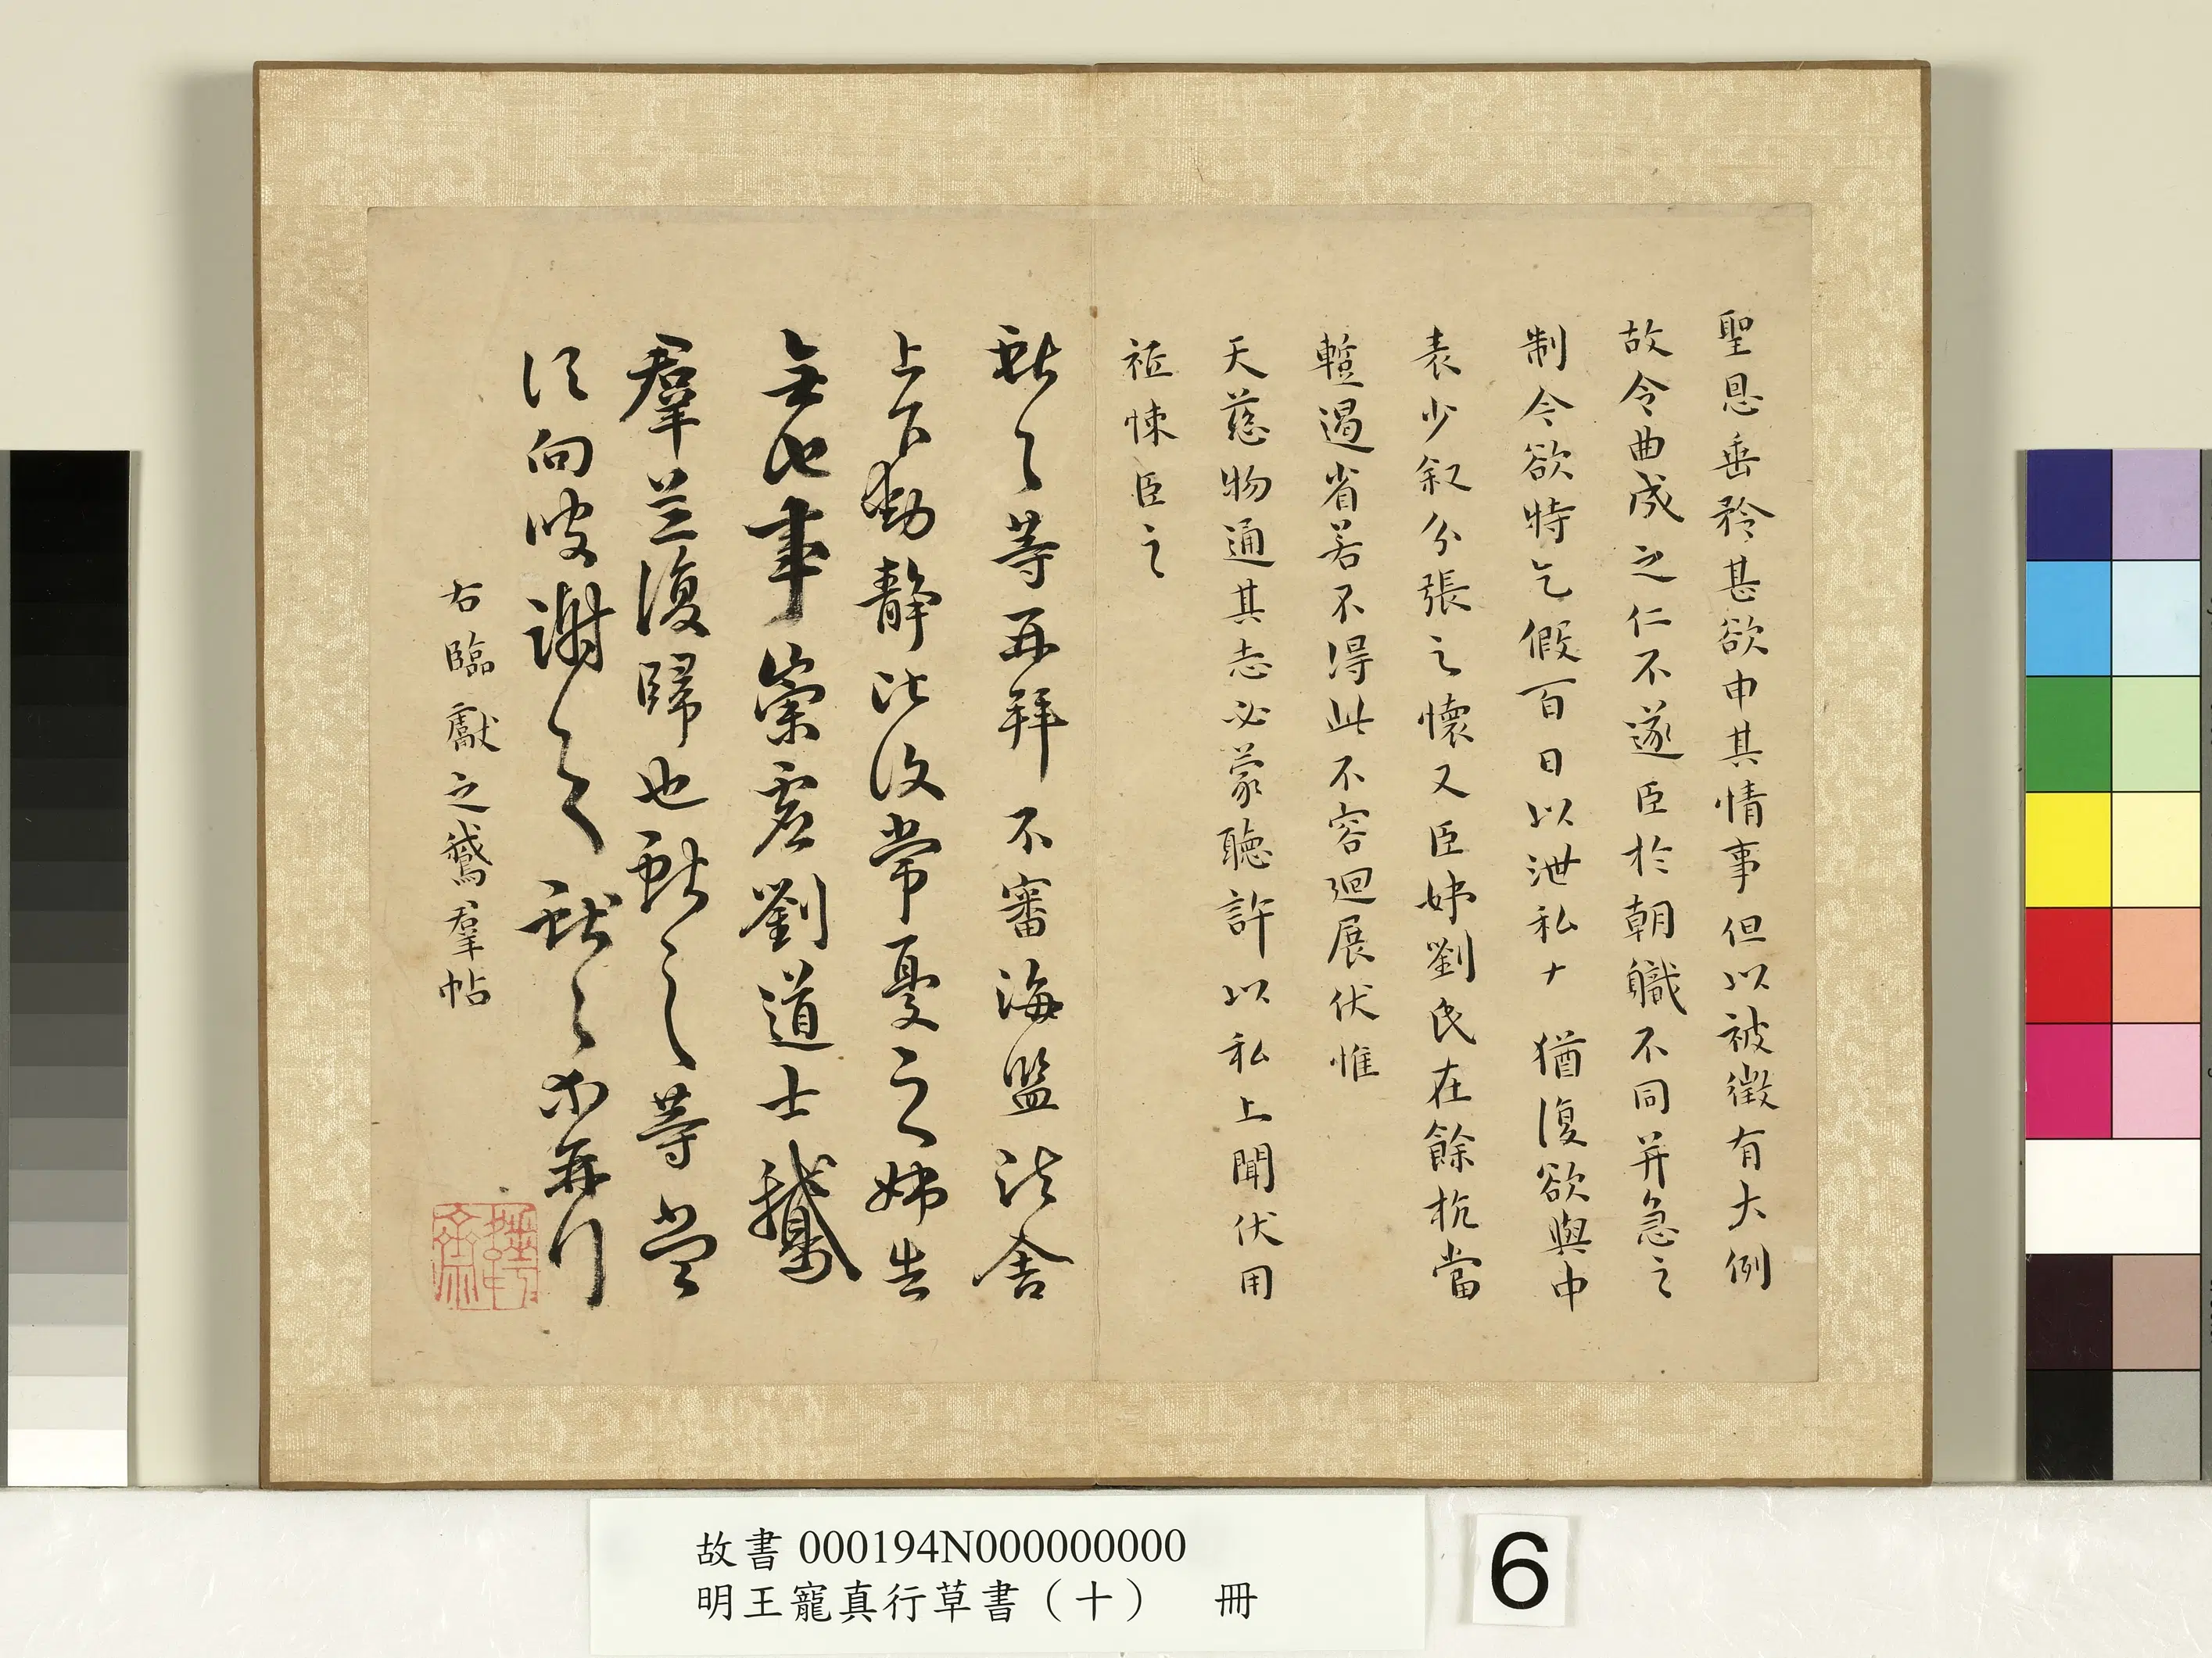 聖恩垂矜甚欲申其情事但以被徵有大例
故令曲成之仁不遂臣於朝職不同并急之
制今欲特乞假百日以泄私十猶復欲與中
表少叙分張之懷又臣姊劉氏在餘杭當
蹔過省若不得此不容迴展伏惟
天慈物通其志必蒙聽許以私上聞伏用
祗悚臣之
獻之等再拜不審海鹽諸舍
上下動靜比復常憂之姊告
無他事崇虛劉道士鵝
羣並復歸也獻之等當
須向彼謝之獻之等再拜
右臨獻之鵞羣帖
故書 000194N000000000
明王寵真行草書（十） 冊
6